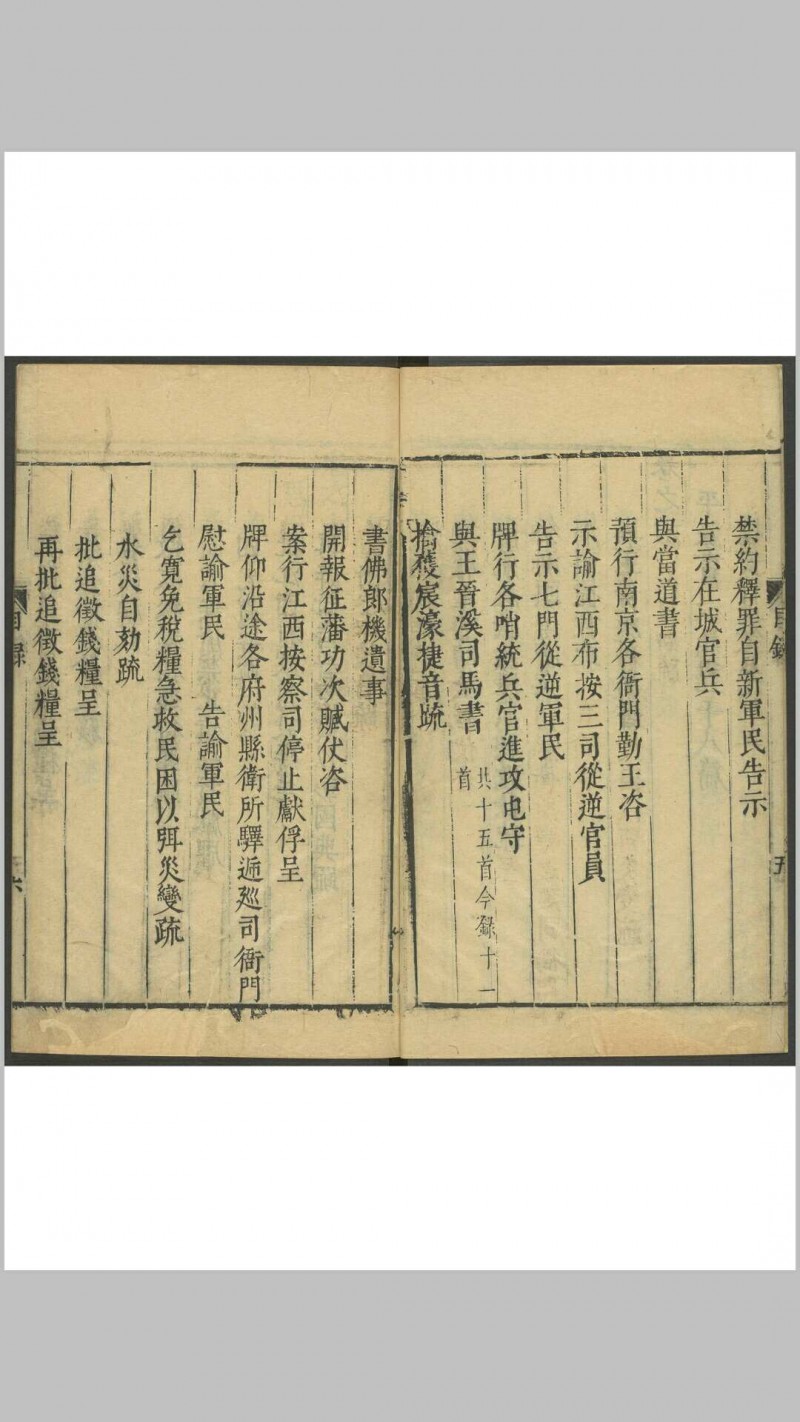 目錄
五
禁約釋罪自新軍民告示
告示在城官兵
與當道書
預行南京各衙門勤王咨
示諭江西布按三司從逆官員
告示七門從逆軍民
牌行各哨統兵官進攻屯守
與王晉溪司馬書 共十五首今錄十一首
擒獲宸濠捷音疏
書佛郎機遺事
開報征藩功次贓仗咨
案行江西按察司停止獻俘呈
牌仰沿途各府州縣衛所驛逓廵司衙門
慰諭軍民 告諭軍民
乞寬免稅糧急救民困以弭災變疏
水災自劾疏
批追徵錢糧呈
再批追徵錢糧呈
目錄
六